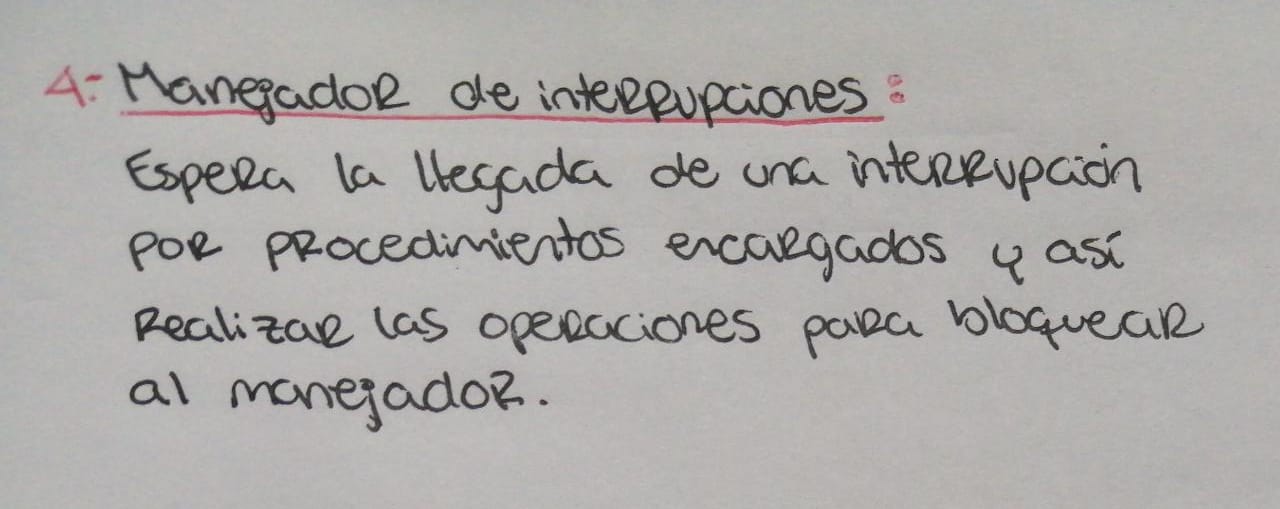 4:- Manejador de interrupciones:
Espera la llegada de una interrupción
por procedimientos encargados y así
Realizar las operaciones para bloquear
al manejador.